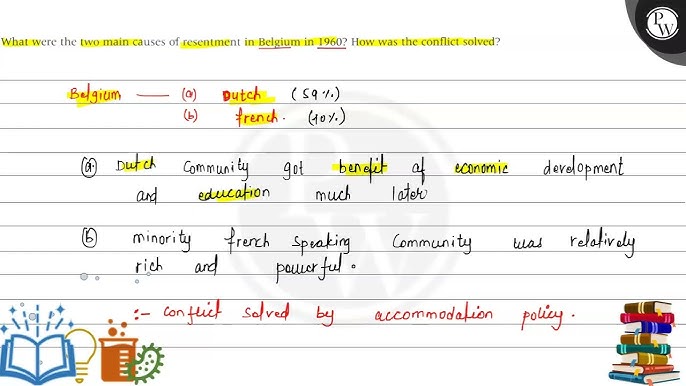 What were the two main causes of resentment in Belgium in 1960? How was the conflict solved?
Belgium — (a) Dutch (59%)
(b) french. (40%)
(a) Dutch Community got benefit of economic development
and education much later
(b) minority french speaking Community was relatively
rich and powerful.
:- Conflict solved by accommodation policy.
PW
PW